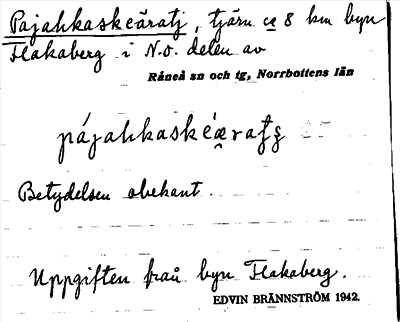 Pajahkaskeäratj, tjärn ca 8 km byn
Flakaberg i N.O. delen av
Råneå sn och tg, Norrbottens län
Betydelsen obekant.
Uppgiften från byn Flakaberg.
EDVIN BRÄNNSTRÖM 1942.